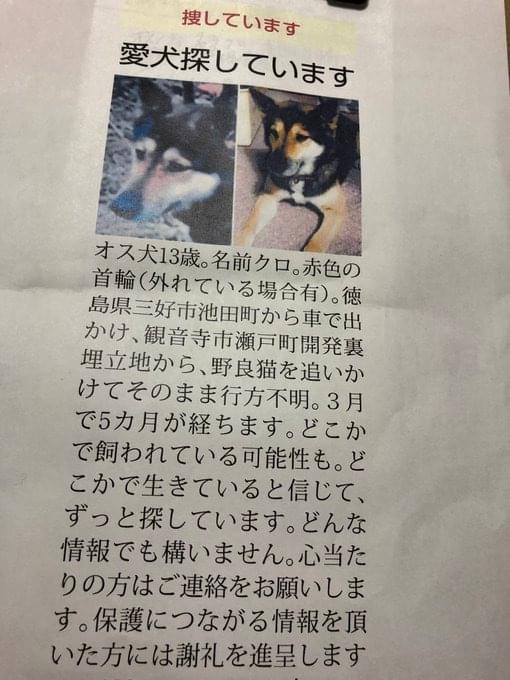 捜しています
愛犬探しています
オス犬13歳。名前クロ。赤色の
首輪(外れている場合有)。徳
島県三好市池田町から車で出
かけ、観音寺市瀬戸町開発裏
埋立地から、野良猫を追いか
けてそのまま行方不明。3月
で5カ月が経ちます。どこか
で飼われている可能性も。ど
こかで生きていると信じて、
ずっと探しています。どんな
情報でも構いません。心当た
りの方はご連絡をお願いしま
す。保護につながる情報を頂
いた方には謝礼を進呈します